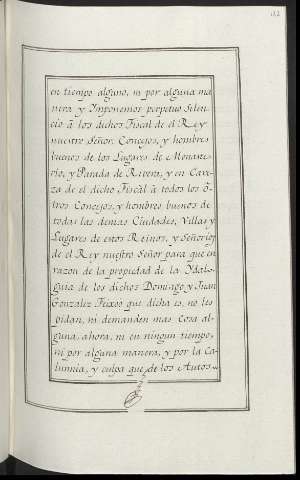 en tiempo alguno, ni por alguna ma
nera, y Imponemos perpetuo silen
cio â los dichos Fiscal de el Rey
nuestro Señor, Concejos, y hombres
buenos de los Lugares de Monaste
rio, y Parada de Rivera, y en Cave
za de el dicho Fiscàl à todos los ô
tros Concejos, y hombres buenos de
todas las demas Ciudades, Villas y
Lugares de estos Reinos, y Señorios
de el Rey nuestro Señor para que en
razon de la propiedad de la Ydal
guia de los dichos Domingo y Juan
Gonzalez que dicha es, no les
pidan, ni demanden mas Cosa al
guna, ahora, ni en ningun tiempo,
ni por alguna manera, y por la Ca
lumnia, y culpa que de los Autos